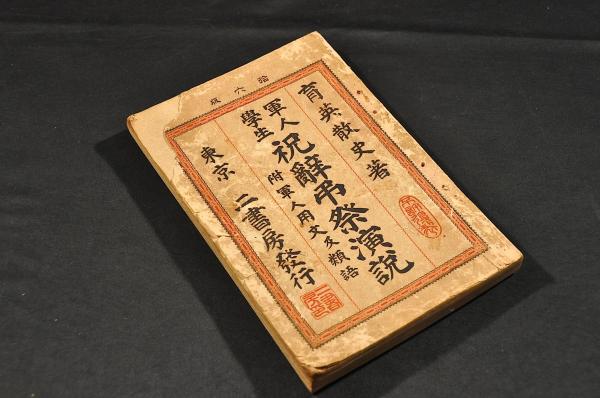 拾六版
育英散史著
軍人
學生
祝辭弔祭演説
附軍人用文及類語
東京 二書房發行